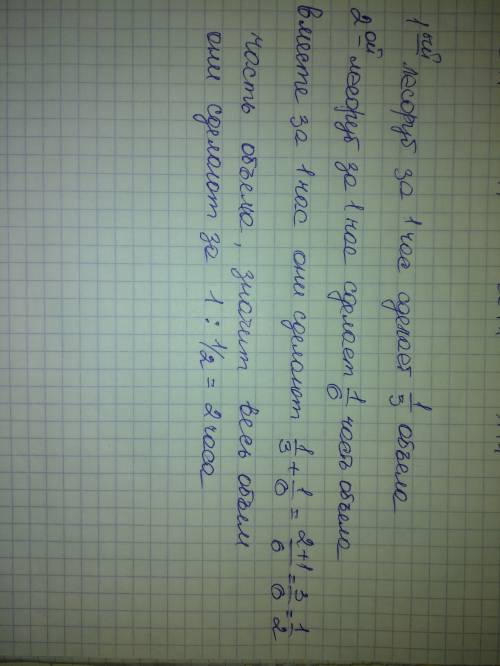 1ый лесоруб за 1 час сделает 1/3 объема
2ой - лесоруб за 1 час сделает 1/6 часть объема
вместе за 1 час они сделают 1/3 + 1/6 = 2+1/6 = 3/6 = 1/2
часть объема, значит весь объем
они сделают за 1 : 1/2 = 2 часа